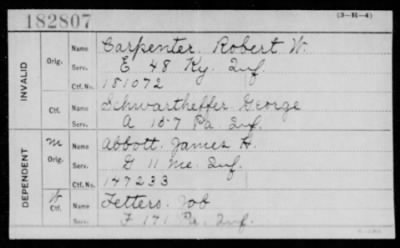 182807
(3-R-4)
INVALID
Orig.
Name Carpenter. Robert W.
Serv. E 48 Ky. Inf.
Ctf. No. 151072
Ctf.
Name Schwartheffer George
Serv. A 107 Pa Inf.
DEPENDENT
M Orig.
Name Abbott. James H.
Serv. D 11 Me. Inf.
Ctf. No. 147233
Ctf.
Name Fetters. Job
Serv. F 171 Pa. Inf.